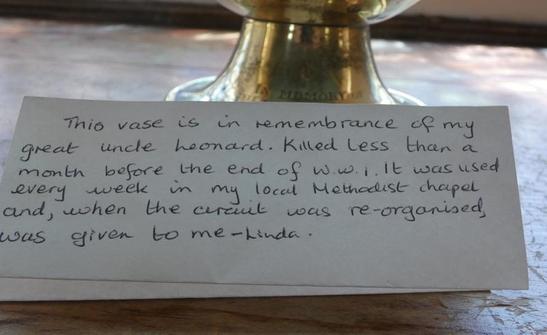 IN MEMORY OF
This vase is in remembrance of my
great uncle Leonard. Killed less than a
month before the end of w.w.1. It was used
every week in my local Methodist chapel
and, when the circuit was re-organised,
was given to me - Linda.